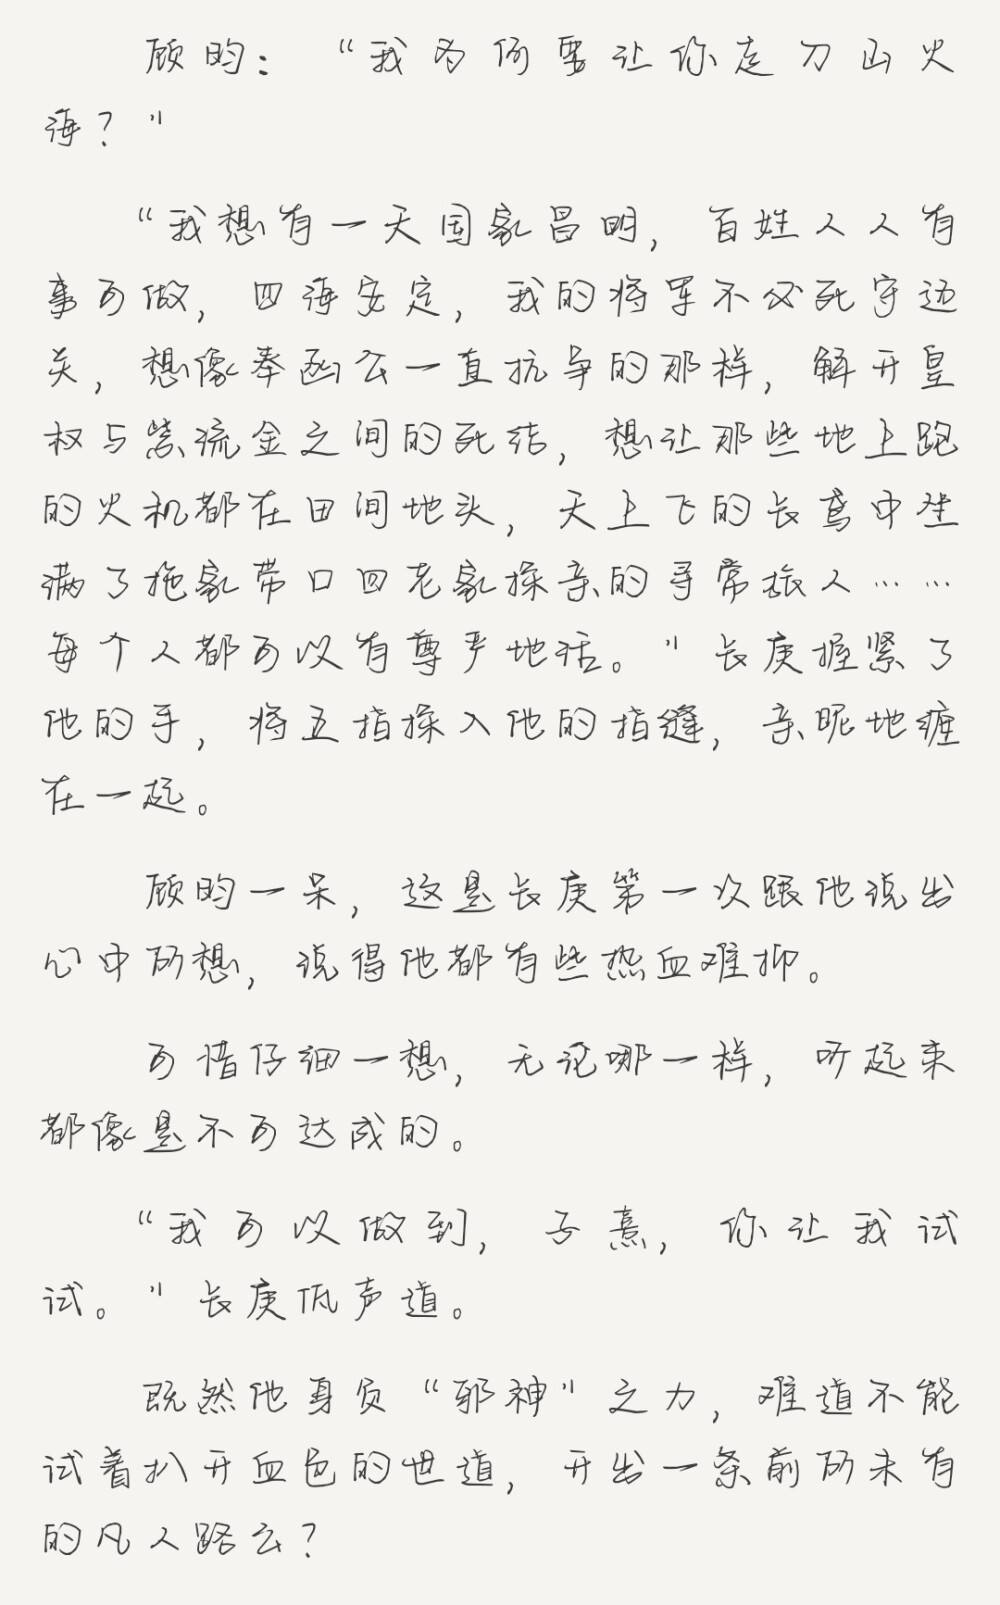 顾昀：“我为何要让你走刀山火
海？”
“我想有一天国家昌明，百姓人人有
事可做，四海安定，我的将军不必死守边
关，想像奉函公一直抗争的那样，解开皇
权与紫流金之间的死结，想让那些地上跑
的火机都在田间地头，天上飞的长鸢中坐
满了拖家带口回老家探亲的寻常旅人……
每个人都可以有尊严地活。”长庚握紧了
他的手，将五指探入他的指缝，亲昵地缠
在一起。
顾昀一呆，这是长庚第一次跟他说出
心中所想，说得他都有些热血难抑。
可惜仔细一想，无论哪一样，听起来
都像是不可达成的。
“我可以做到，子熹，你让我试
试。”长庚低声道。
既然他身负“邪神”之力，难道不能
试着扒开血色的世道，开出一条前所未有
的凡人路么？